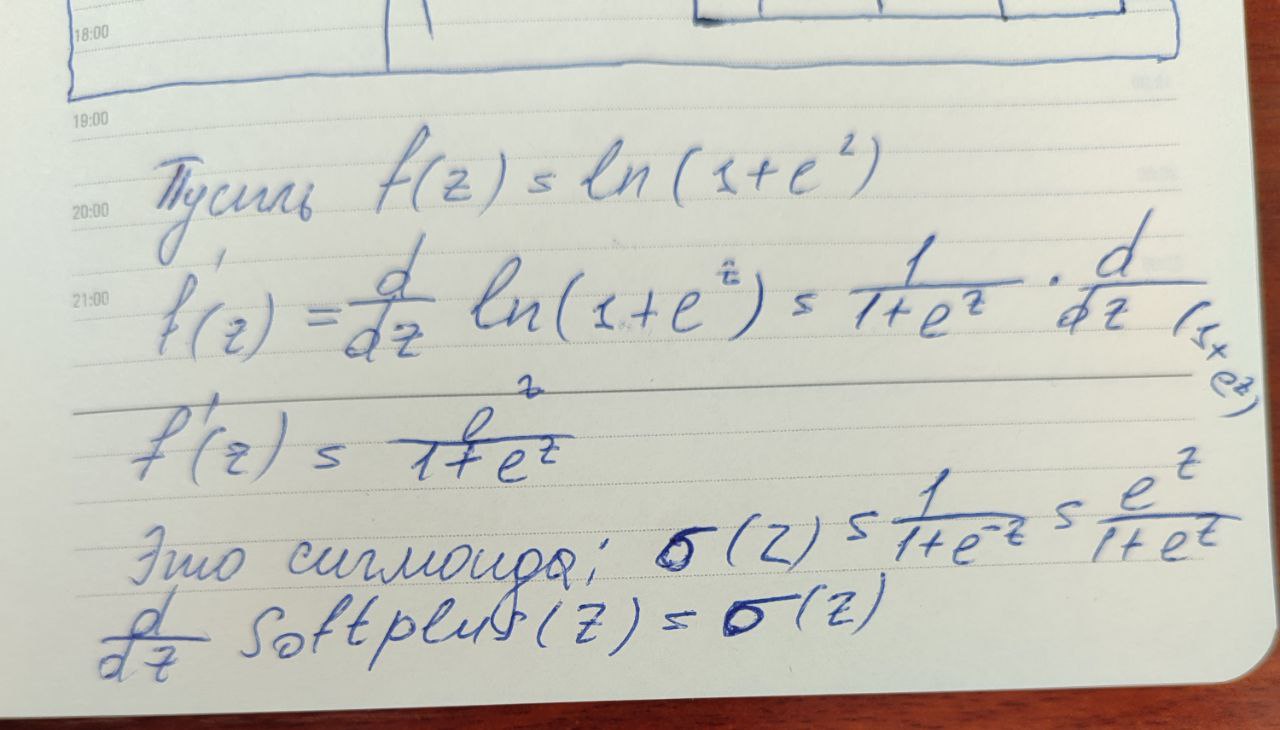 18:00
19:00
Пусть f(z) = ln(1+e^z)
20:00
21:00
f'(z) = d/dz ln(1+e^z) = 1/(1+e^z) · d/dz (1+e^z)
f'(z) = e^z/(1+e^z)
Это сигмоида; σ(z) = 1/(1+e^-z) = e^z/(1+e^z)
d/dz Softplus(z) = σ(z)